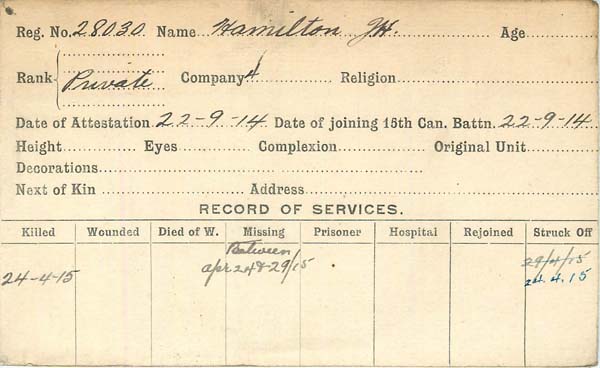 Reg. No. 28030 Name Hamilton JH. Age
Rank Private Company 4 Religion
Date of Attestation 22-9-14 Date of joining 15th Can. Battn. 22-9-14
Height Eyes Complexion Original Unit
Decorations
Next of Kin Address
RECORD OF SERVICES.
Killed Wounded Died of W. Missing Prisoner Hospital Rejoined Struck Off
Between
24-4-15 apr 24 & 29/15 29/4/15
24.4.15